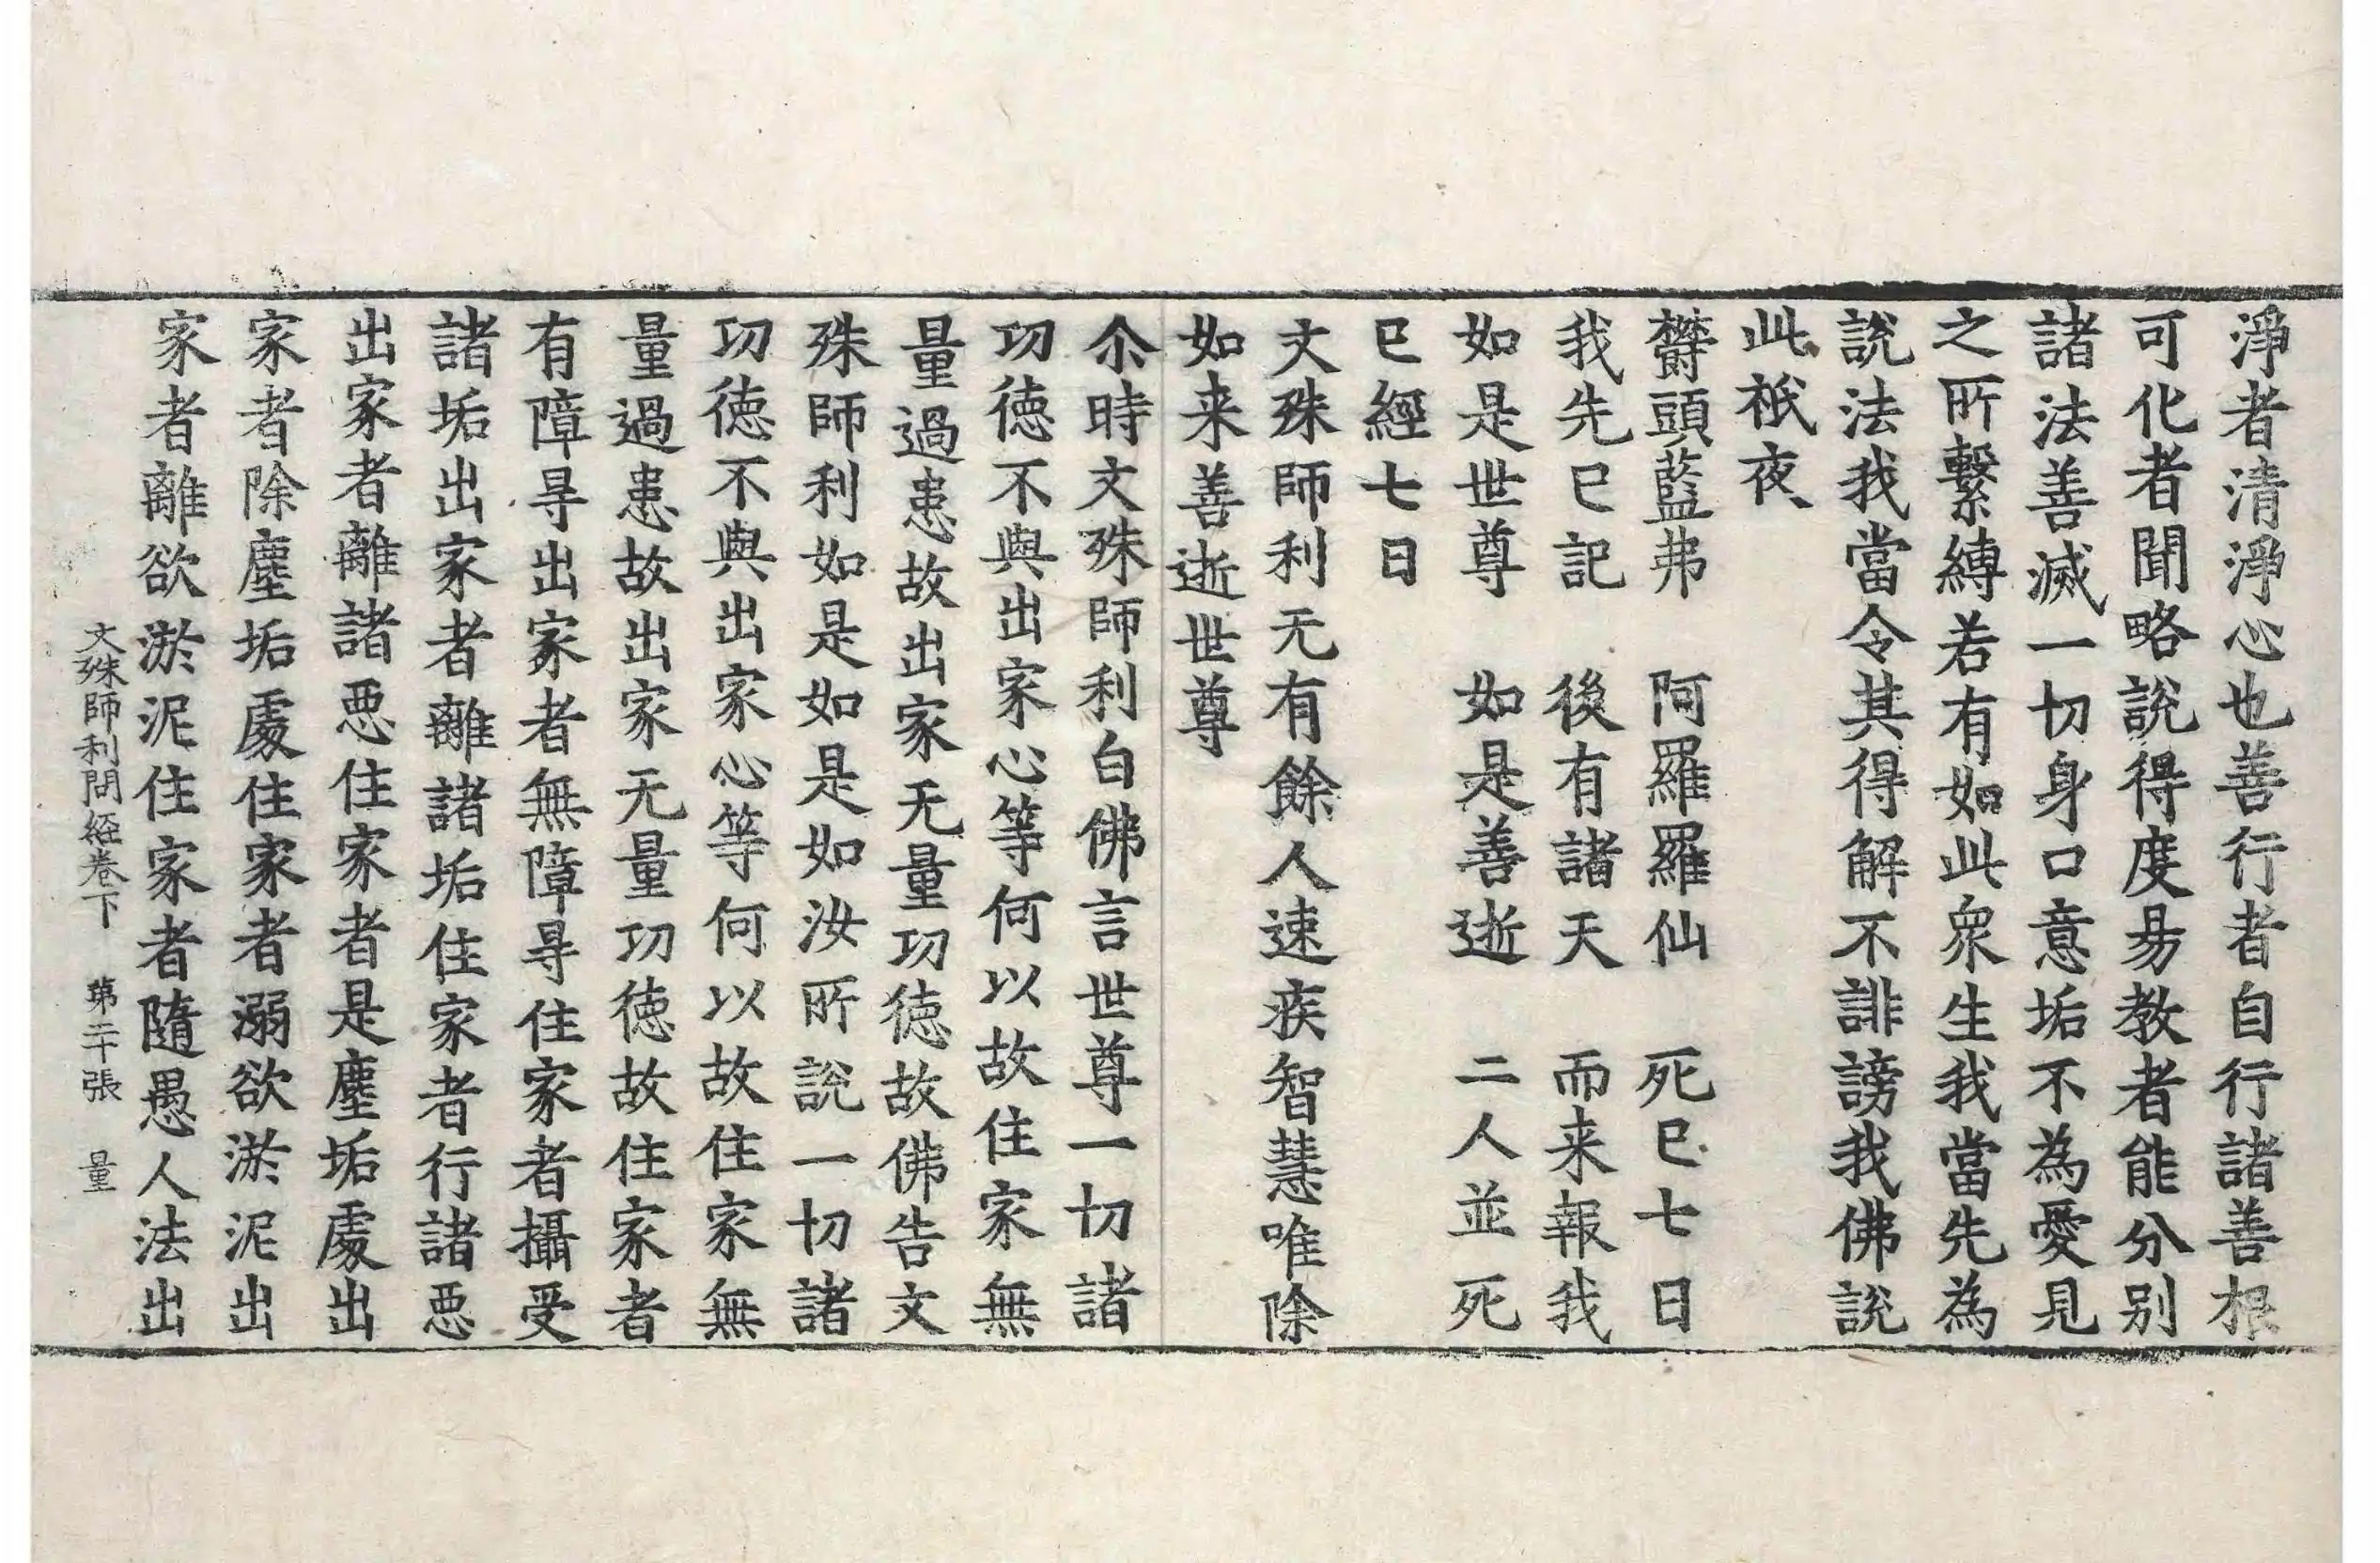 淨者清淨心也善行者自行諸善根
可化者聞略說得度易教者能分别
諸法善滅一切身口意垢不為愛見
之所繫縛若有如此衆生我當先為
說法我當令其得解不誹謗我佛說
此祇夜
欝頭藍弗　阿羅羅仙　死巳七日
我先巳記　後有諸天　而来報我
如是世尊　如是善逝　二人並死
巳經七日
文殊師利无有餘人速疾智慧唯除
如来善逝世尊
尒時文殊師利白佛言世尊一切諸
功徳不與出家心等何以故住家無
量過患故出家无量功徳故佛告文
殊師利如是如是如汝所說一切諸
功徳不與出家心等何以故住家無
量過患故出家无量功徳故住家者
有障㝵出家者無障㝵住家者攝受
諸垢出家者離諸垢住家者行諸惡
出家者離諸惡住家者是塵垢處出
家者除塵垢處住家者溺欲淤泥出
家者離欲淤泥住家者隨愚人法出
文殊師利問經卷下　第二十張　量